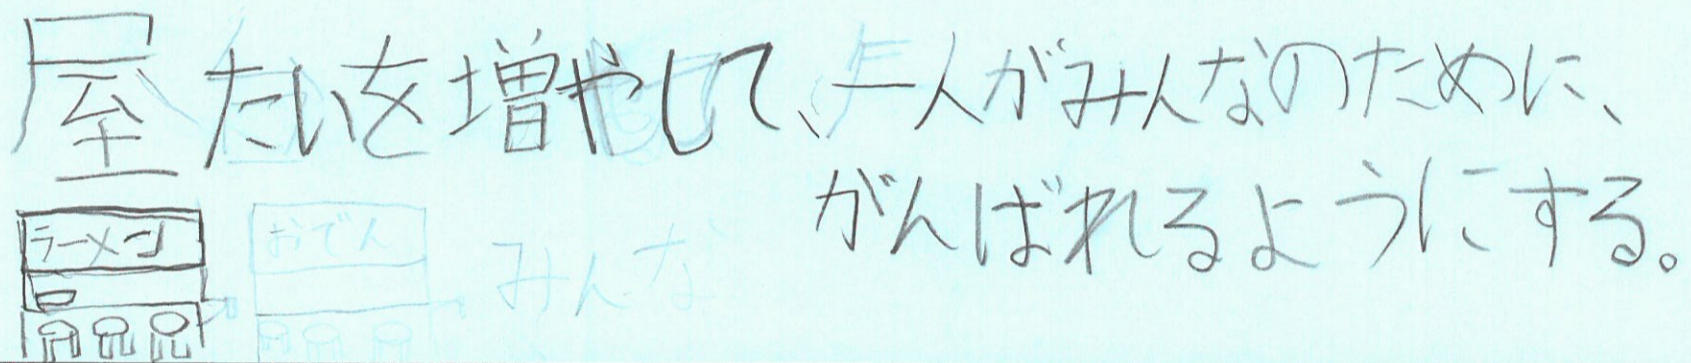 屋たいを増やして、一人がみんなのために、
がんばれるようにする。
ラーメン
おでん
みんな